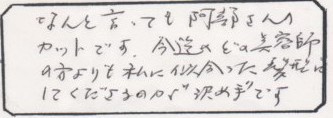 なんと言っても阿部さんの
カットです。今迄のどの美容師
の方よりも私に似合った髪形に
してくださるのが決め手です